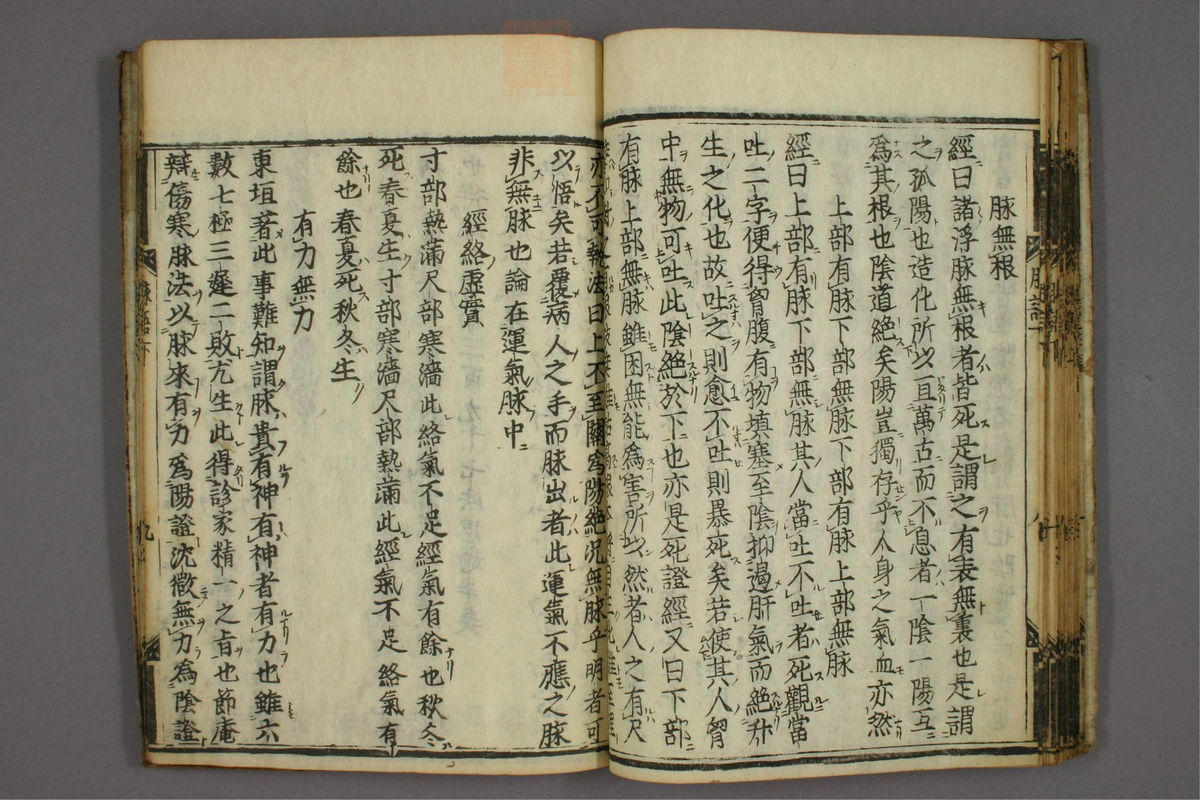 脉無根
經曰諸浮脉無根者皆死是謂之有表無裏也是謂
之孤陽也造化所以亘萬古而不息者一陰一陽互
爲其根也陰道絶矣陽豈獨存乎人身之氣血亦然
上部有脉下部無脉下部有脉上部無脉
經曰上部有脉下部無脉其人當吐不吐者死觀當
吐二字便得胷腹有物填塞至陰抑遏肝氣而絶升
生之化也故吐之則愈不吐則暴死矣若使其人胷
中無物可吐此陰絶於下也亦是死證經又曰下部
有脉上部無脉雖困無能爲害所以然者人之有尺
亦不可執法曰上不至關爲陽絶况無脉乎明者可
以悟矣若覆病人之手而脉出者此運氣不應之脉
非無脉也論在運氣脉中
經絡虚實
寸部熱滿尺部寒濇此絡氣不足經氣有餘也秋冬
死春夏生寸部寒濇尺部熱滿此經氣不足絡氣有
餘也春夏死秋冬生
有力無力
東垣著此事難知謂脉貴有神有神者有力也雖六
數七極三遲二敗尤生此得診家精一之旨也節庵
辯傷寒脉法以脉來有力爲陽證沈微無力爲陰證